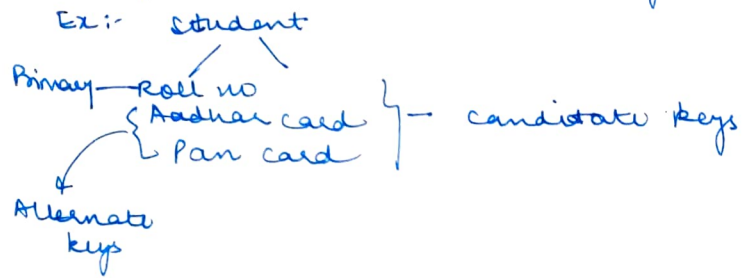 Ex :- Student
Primary Roll no
Aadhar card
Pan card
candidate keys
Alternate
keys